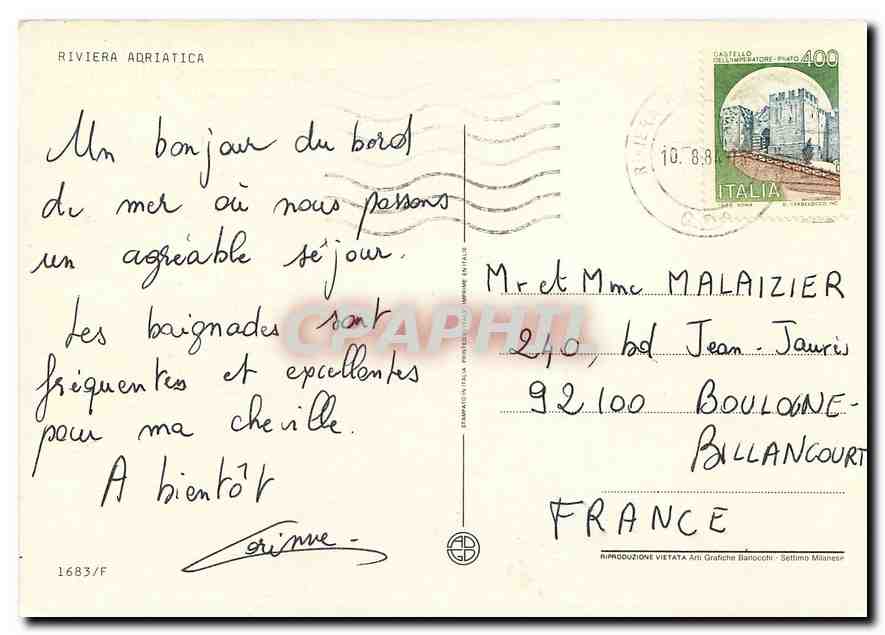 RIVIERA ADRIATICA
Un bonjour du bord
de mer où nous passons
un agréable séjour.
Les baignades sont
fréquentes et excellentes
pour ma cheville.
A bientôt
Corinne
1683/F
STAMPATO IN ITALIA PRINTED IN ITALY IMPRIME EN ITALIE
CASTELLO
DELL'IMPERATORE - PRATO 400
10.8.84
ITALIA
Mr et Mme MALAIZIER
240, bd Jean-Jaurès
92100 BOULOGNE-
BILLANCOURT
FRANCE
RIPRODUZIONE VIETATA Arti Grafiche Barlocchi - Settimo Milanese
CPAPHIL